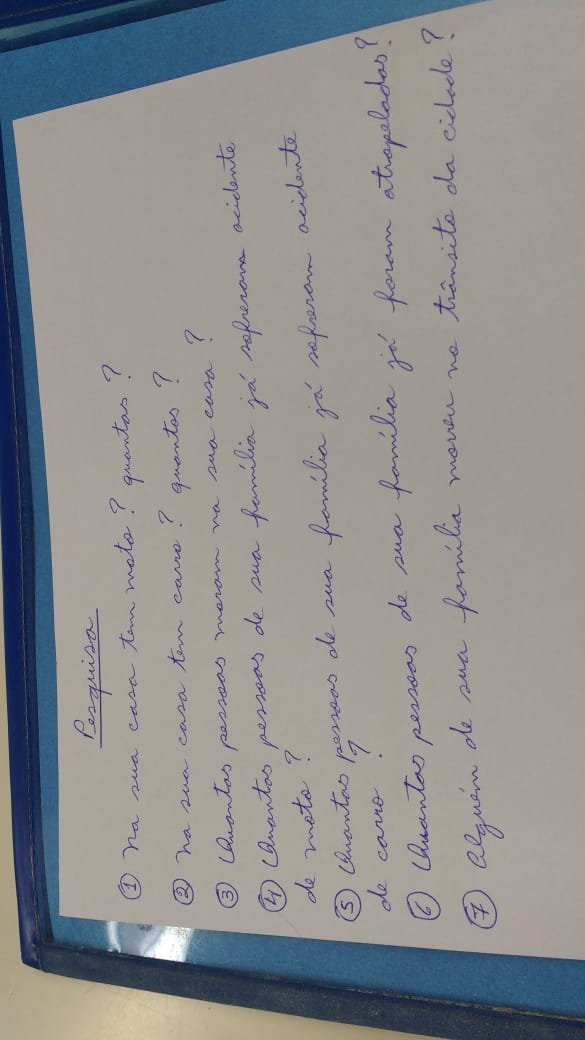 Pesquisa
① Na sua casa tem moto? quantas?
② Na sua casa tem carro? quantos?
③ Quantas pessoas moram na sua casa?
④ Quantas pessoas de sua família já sofreram acidente
de moto?
⑤ Quantas pessoas de sua família já sofreram acidente
de carro?
⑥ Quantas pessoas de sua família já foram atropeladas?
⑦ Alguém de sua família morreu no trânsito da cidade?